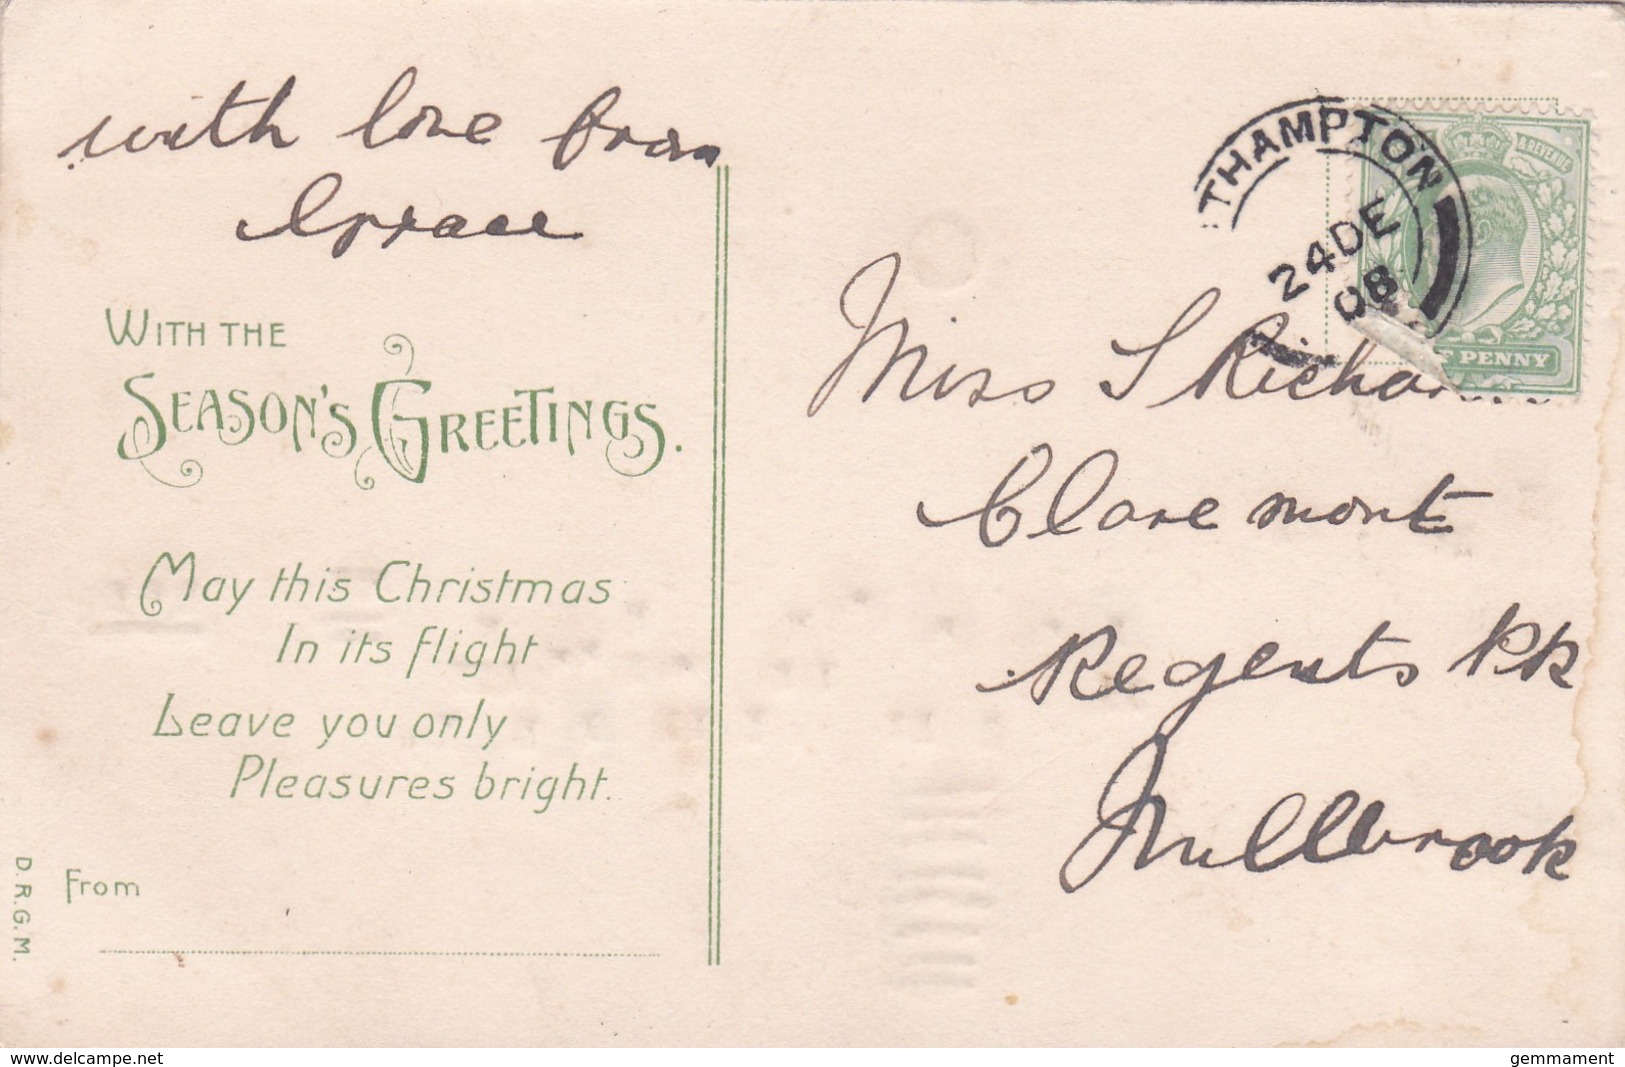 with love from
Grace
WITH THE
SEASON'S GREETINGS.
May this Christmas
In its flight
Leave you only
Pleasures bright.
From
D.R.G.M.
THAMPTON
24 DE
08
& REVENUE
PENNY
Miss S
Claremont
Regents Pk
Millbrook
www.delcampe.net
gemmament